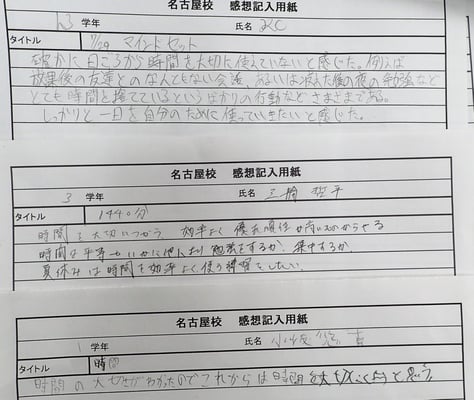 名古屋校 感想記入用紙
h3 学年 氏名 K.C
タイトル 7/29 マインドセット
確かに日ごろから時間を大切に使えていないと感じた。例えば
放課後の友達とのなんともない会話、あるいは疲れた後の夜の勉強など
とても時間を捨てているというばかりの行動などさまざまである。
しっかりと一日を自分のために使っていきたいと感じた。
名古屋校 感想記入用紙
3 学年 氏名 三輪 平
タイトル 1440分
時間を大切につかう 効率よく優先順位が高いものからやる
時間は平等 いかに他人より勉強をするか、集中するか
夏休みは時間を効率よく使う練習をしたい。
名古屋校 感想記入用紙
1 学年 氏名 小坂
タイトル 時間
時間の大切さがわかったのでこれからは時間を大切にしようと思う。